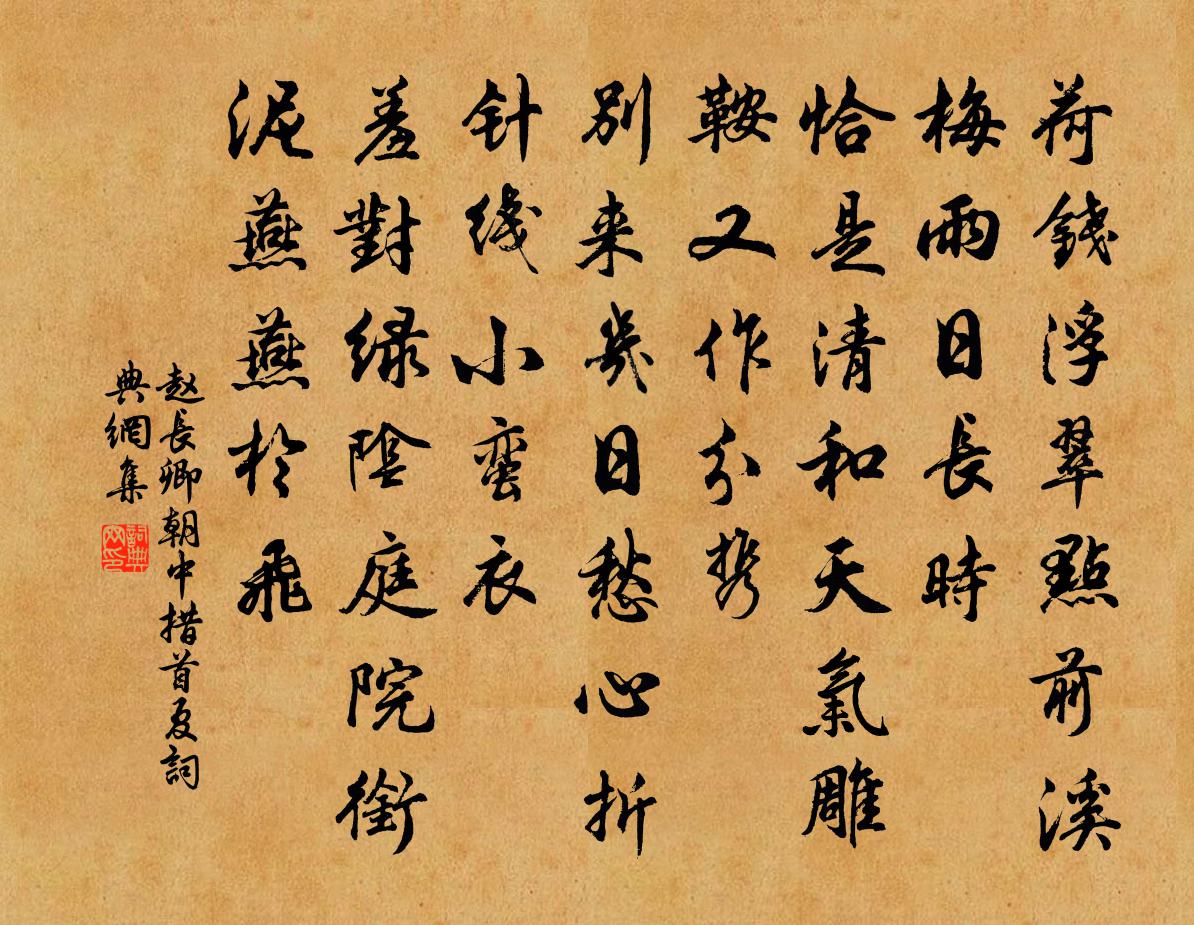 荷錢浮翠點前溪
梅雨日長時
恰是清和天氣雕
鞍又作分携
別来幾日愁心折
针线小蛮衣
羞對绿陰庭院銜
泥燕燕於飛
赵長卿朝中措首夏詞
典網集
詞典网印